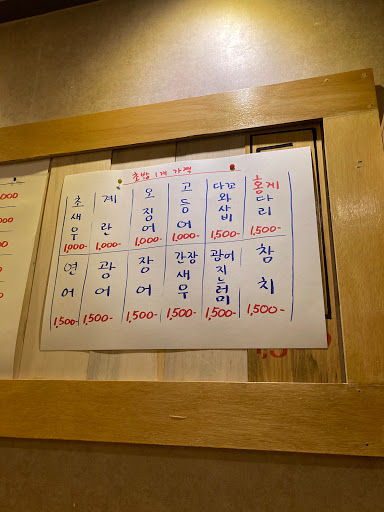 초밥 1개 가격
초새우
1,000-
계란
1,000-
오징어
1,000-
고등어
1,000-
다꼬와사비
1,500-
홍게다리
1,500-
연어
1,500-
광어
1,500-
장어
1,500-
간장새우
1,500-
광어지느러미
1,500-
참치
1,500-